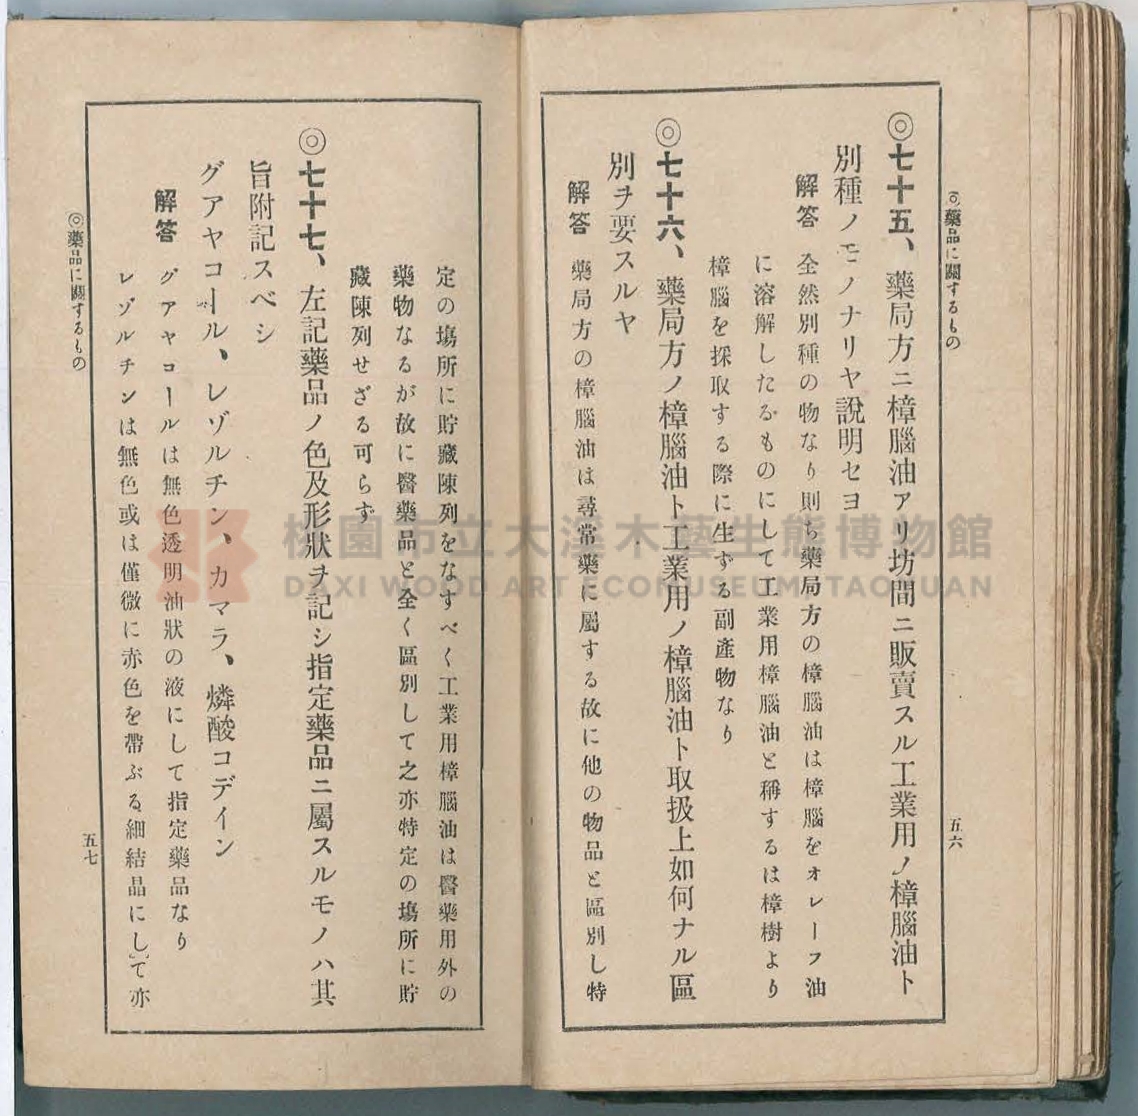 ◎藥品に關するもの
五六
◎七十五、藥局方ニ樟腦油アリ坊間ニ販賣スル工業用ノ樟腦油ト
別種ノモノナリヤ說明セヨ
解答 全然別種の物なり則ち藥局方の樟腦油は樟腦をオレーフ油
に溶解したるものにして工業用樟腦油と稱するは樟樹より
樟腦を採取する際に生ずる副產物なり
◎七十六、藥局方ノ樟腦油ト工業用ノ樟腦油ト取扱上如何ナル區
別ヲ要スルヤ
解答 藥局方の樟腦油は尋常藥に屬する故に他の物品と區別し特
定の塲所に貯藏陳列をなすべく工業用樟腦油は醫藥用外の
藥物なるが故に醫藥品と全く區別して之亦特定の塲所に貯
藏陳列せざる可らず
◎七十七、左記藥品ノ色及形狀ヲ記シ指定藥品ニ屬スルモノハ其
旨附記スベシ
グアヤコール、レゾルチン、カマラ、燐酸コデイン
解答 グアヤコールは無色透明油狀の液にして指定藥品なり
レゾルチンは無色或は僅微に赤色を帶ぶる細結晶にして亦
◎藥品に關するもの
五七
桃園市立大溪木藝生態博物館
DAXI WOOD ART ECOMUSEUM, TAOYUAN